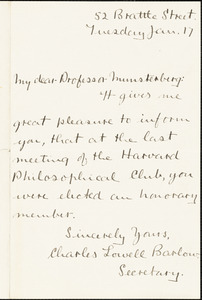 52 Brattle Street.
Tuesday Jan. 17
My dear Professor Munsterberg:
It gives me
great pleasure to inform
you, that at the last
meeting of the Harvard
Philosophical Club, you
were elected an honorary
member.
Sincerely Yours,
Charles Lowell Barlow
Secretary.